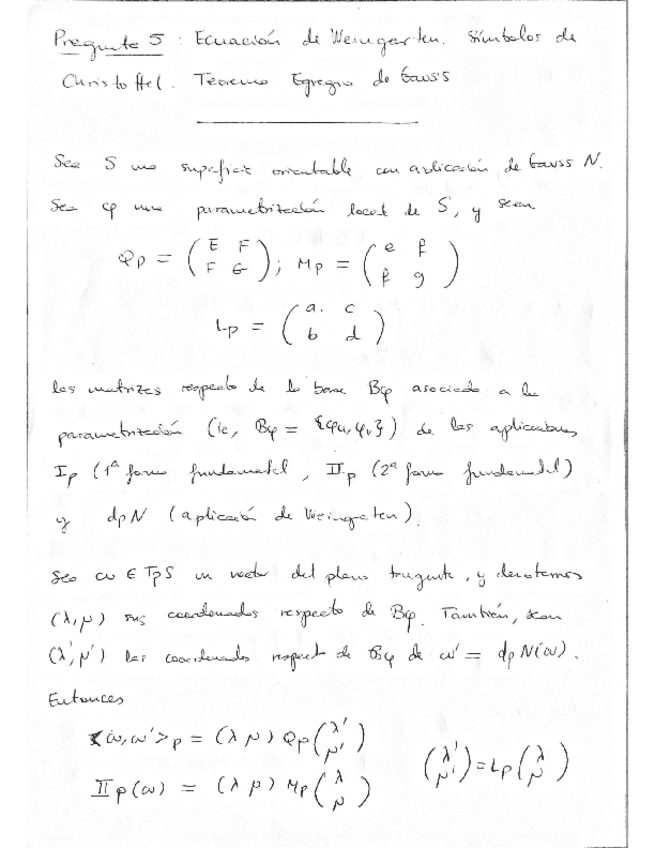 Pregunta 5 : Ecuación de Weingarten. Símbolos de
Christoffel. Teorema Egregio de Gauss
Sea S una superficie orientable, con aplicación de Gauss N.
Sea φ una parametrización local de S, y sean
Qp = ( E F ; F G ) ; Mp = ( e f ; f g )
Lp = ( a. c ; b d )
las matrizes respecto de la base Bφ asociada a la
parametrización (ie, Bφ = {φu, φv}) de las aplicaciones
Ip (1ª forma fundamental, IIp (2ª forma fundamental)
y dpN (aplicación de Weingarten).
Sea ω ∈ TpS un vector del plano tangente, y denotemos
(λ, μ) sus coordenadas respecto de Bφ. También, sean
(λ', μ') las coordenadas respect de Bφ de ω' = dpN(ω).
Entonces
<ω, ω'>p = (λ μ) Qp (λ' ; μ')
(λ' ; μ') = Lp (λ ; μ)
IIp(ω) = (λ μ) Mp (λ ; μ)